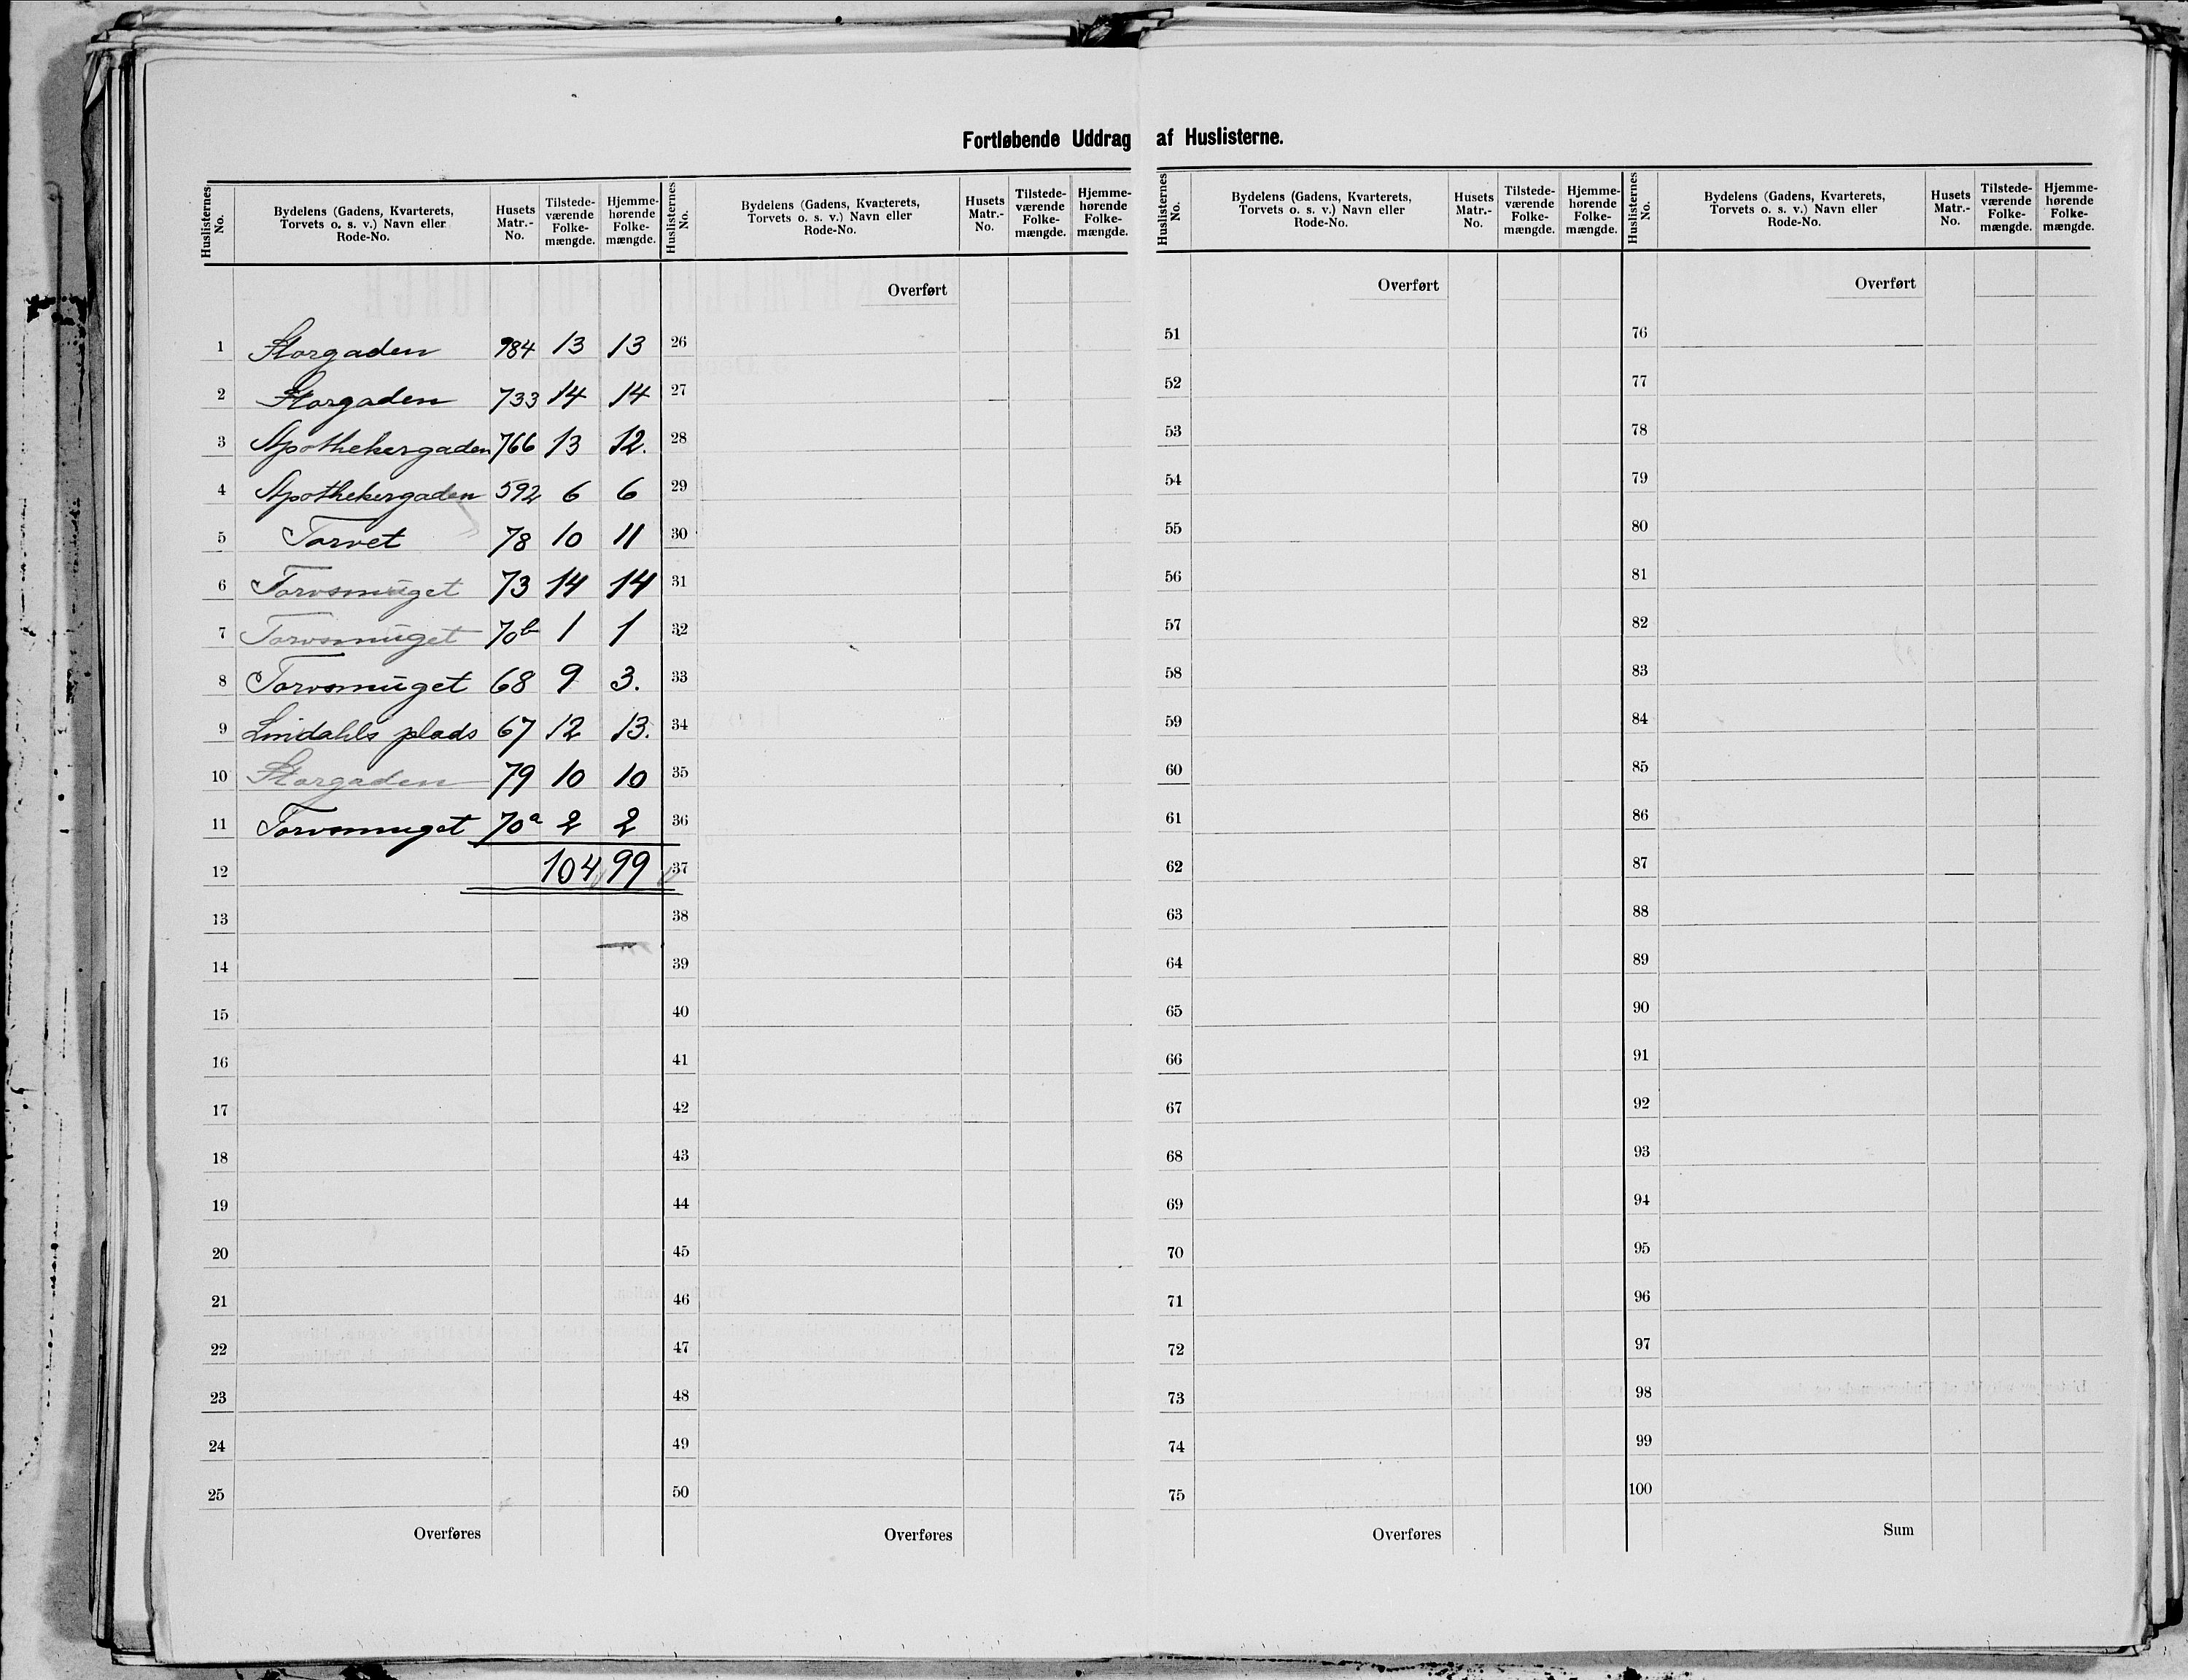 Fortløbende Uddrag af Huslisterne.
Huslisternes No. | Bydelens (Gadens, Kvarterets, Torvets o. s. v.) Navn eller Rode-No. | Husets Matr.-No. | Tilstede-værende Folke-mængde. | Hjemme-hørende Folke-mængde.
1 Storgaden 984 13 13
2 Storgaden 733 14 14
3 Apothekergaden 766 13 12.
4 Apothekergaden 592 6 6
5 Torvet 78 10 11
6 Torvsmuget 73 14 14
7 Torvsmuget 70b 1 1
8 Torvsmuget 68 9 3.
9 Lindahls plads 67 12 13.
10 Storgaden 79 10 10
11 Torvsmuget 70a 2 2
12 104 99
13
14
15
16
17
18
19
20
21
22
23
24
25
Overføres
Huslisternes No. | Bydelens (Gadens, Kvarterets, Torvets o. s. v.) Navn eller Rode-No. | Husets Matr.-No. | Tilstede-værende Folke-mængde. | Hjemme-hørende Folke-mængde.
Overført
26
27
28
29
30
31
32
33
34
35
36
37
38
39
40
41
42
43
44
45
46
47
48
49
50
Overføres
Huslisternes No. | Bydelens (Gadens, Kvarterets, Torvets o. s. v.) Navn eller Rode-No. | Husets Matr.-No. | Tilstede-værende Folke-mængde. | Hjemme-hørende Folke-mængde.
Overført
51
52
53
54
55
56
57
58
59
60
61
62
63
64
65
66
67
68
69
70
71
72
73
74
75
Overføres
Huslisternes No. | Bydelens (Gadens, Kvarterets, Torvets o. s. v.) Navn eller Rode-No. | Husets Matr.-No. | Tilstede-værende Folke-mængde. | Hjemme-hørende Folke-mængde.
Overført
76
77
78
79
80
81
82
83
84
85
86
87
88
89
90
91
92
93
94
95
96
97
98
99
100
Sum